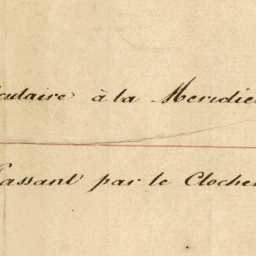 culaire à la Meridie
Passant par le Cloche